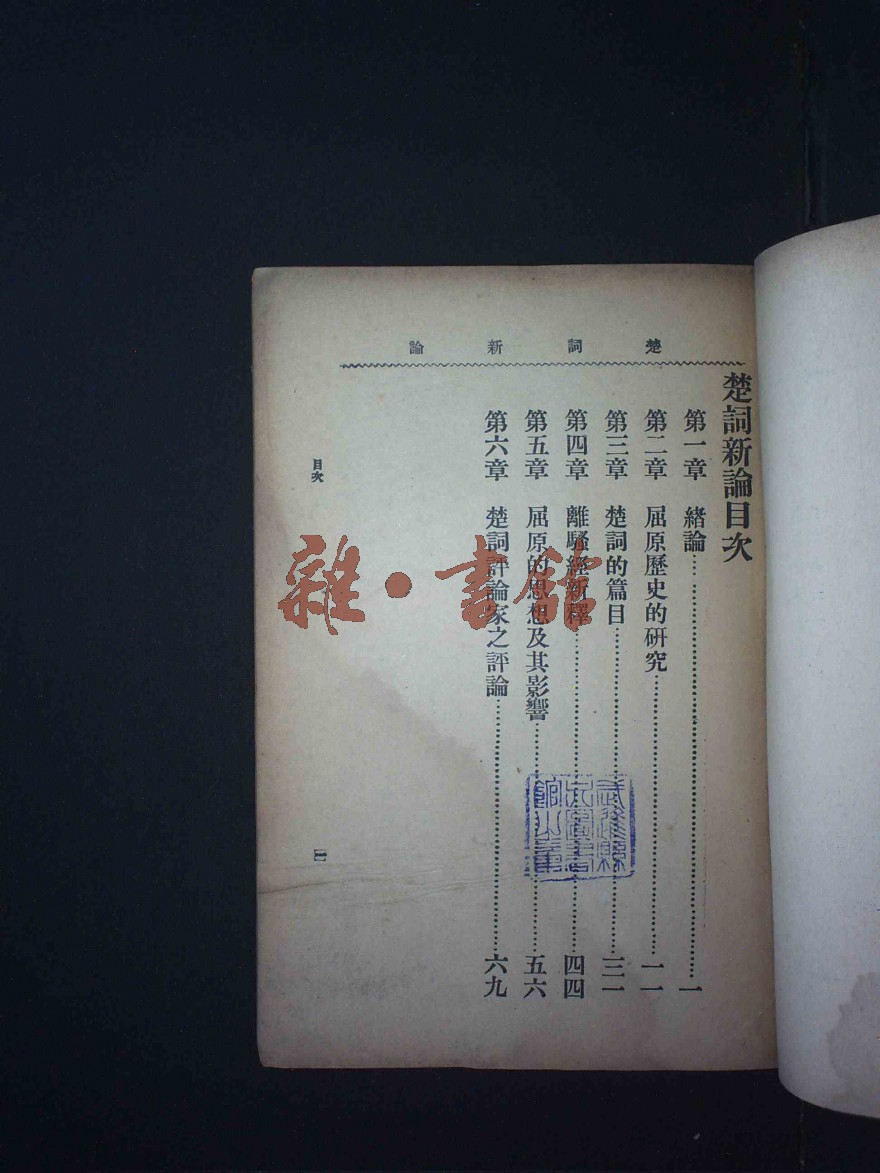 楚詞新論
楚詞新論目次
第一章 緒論……一
第二章 屈原歷史的研究……一一
第三章 楚詞的篇目……三一
第四章 離騷經新釋……四四
第五章 屈原的思想及其影響……五六
第六章 楚詞評論家之評論……六九
目次
雜·書館